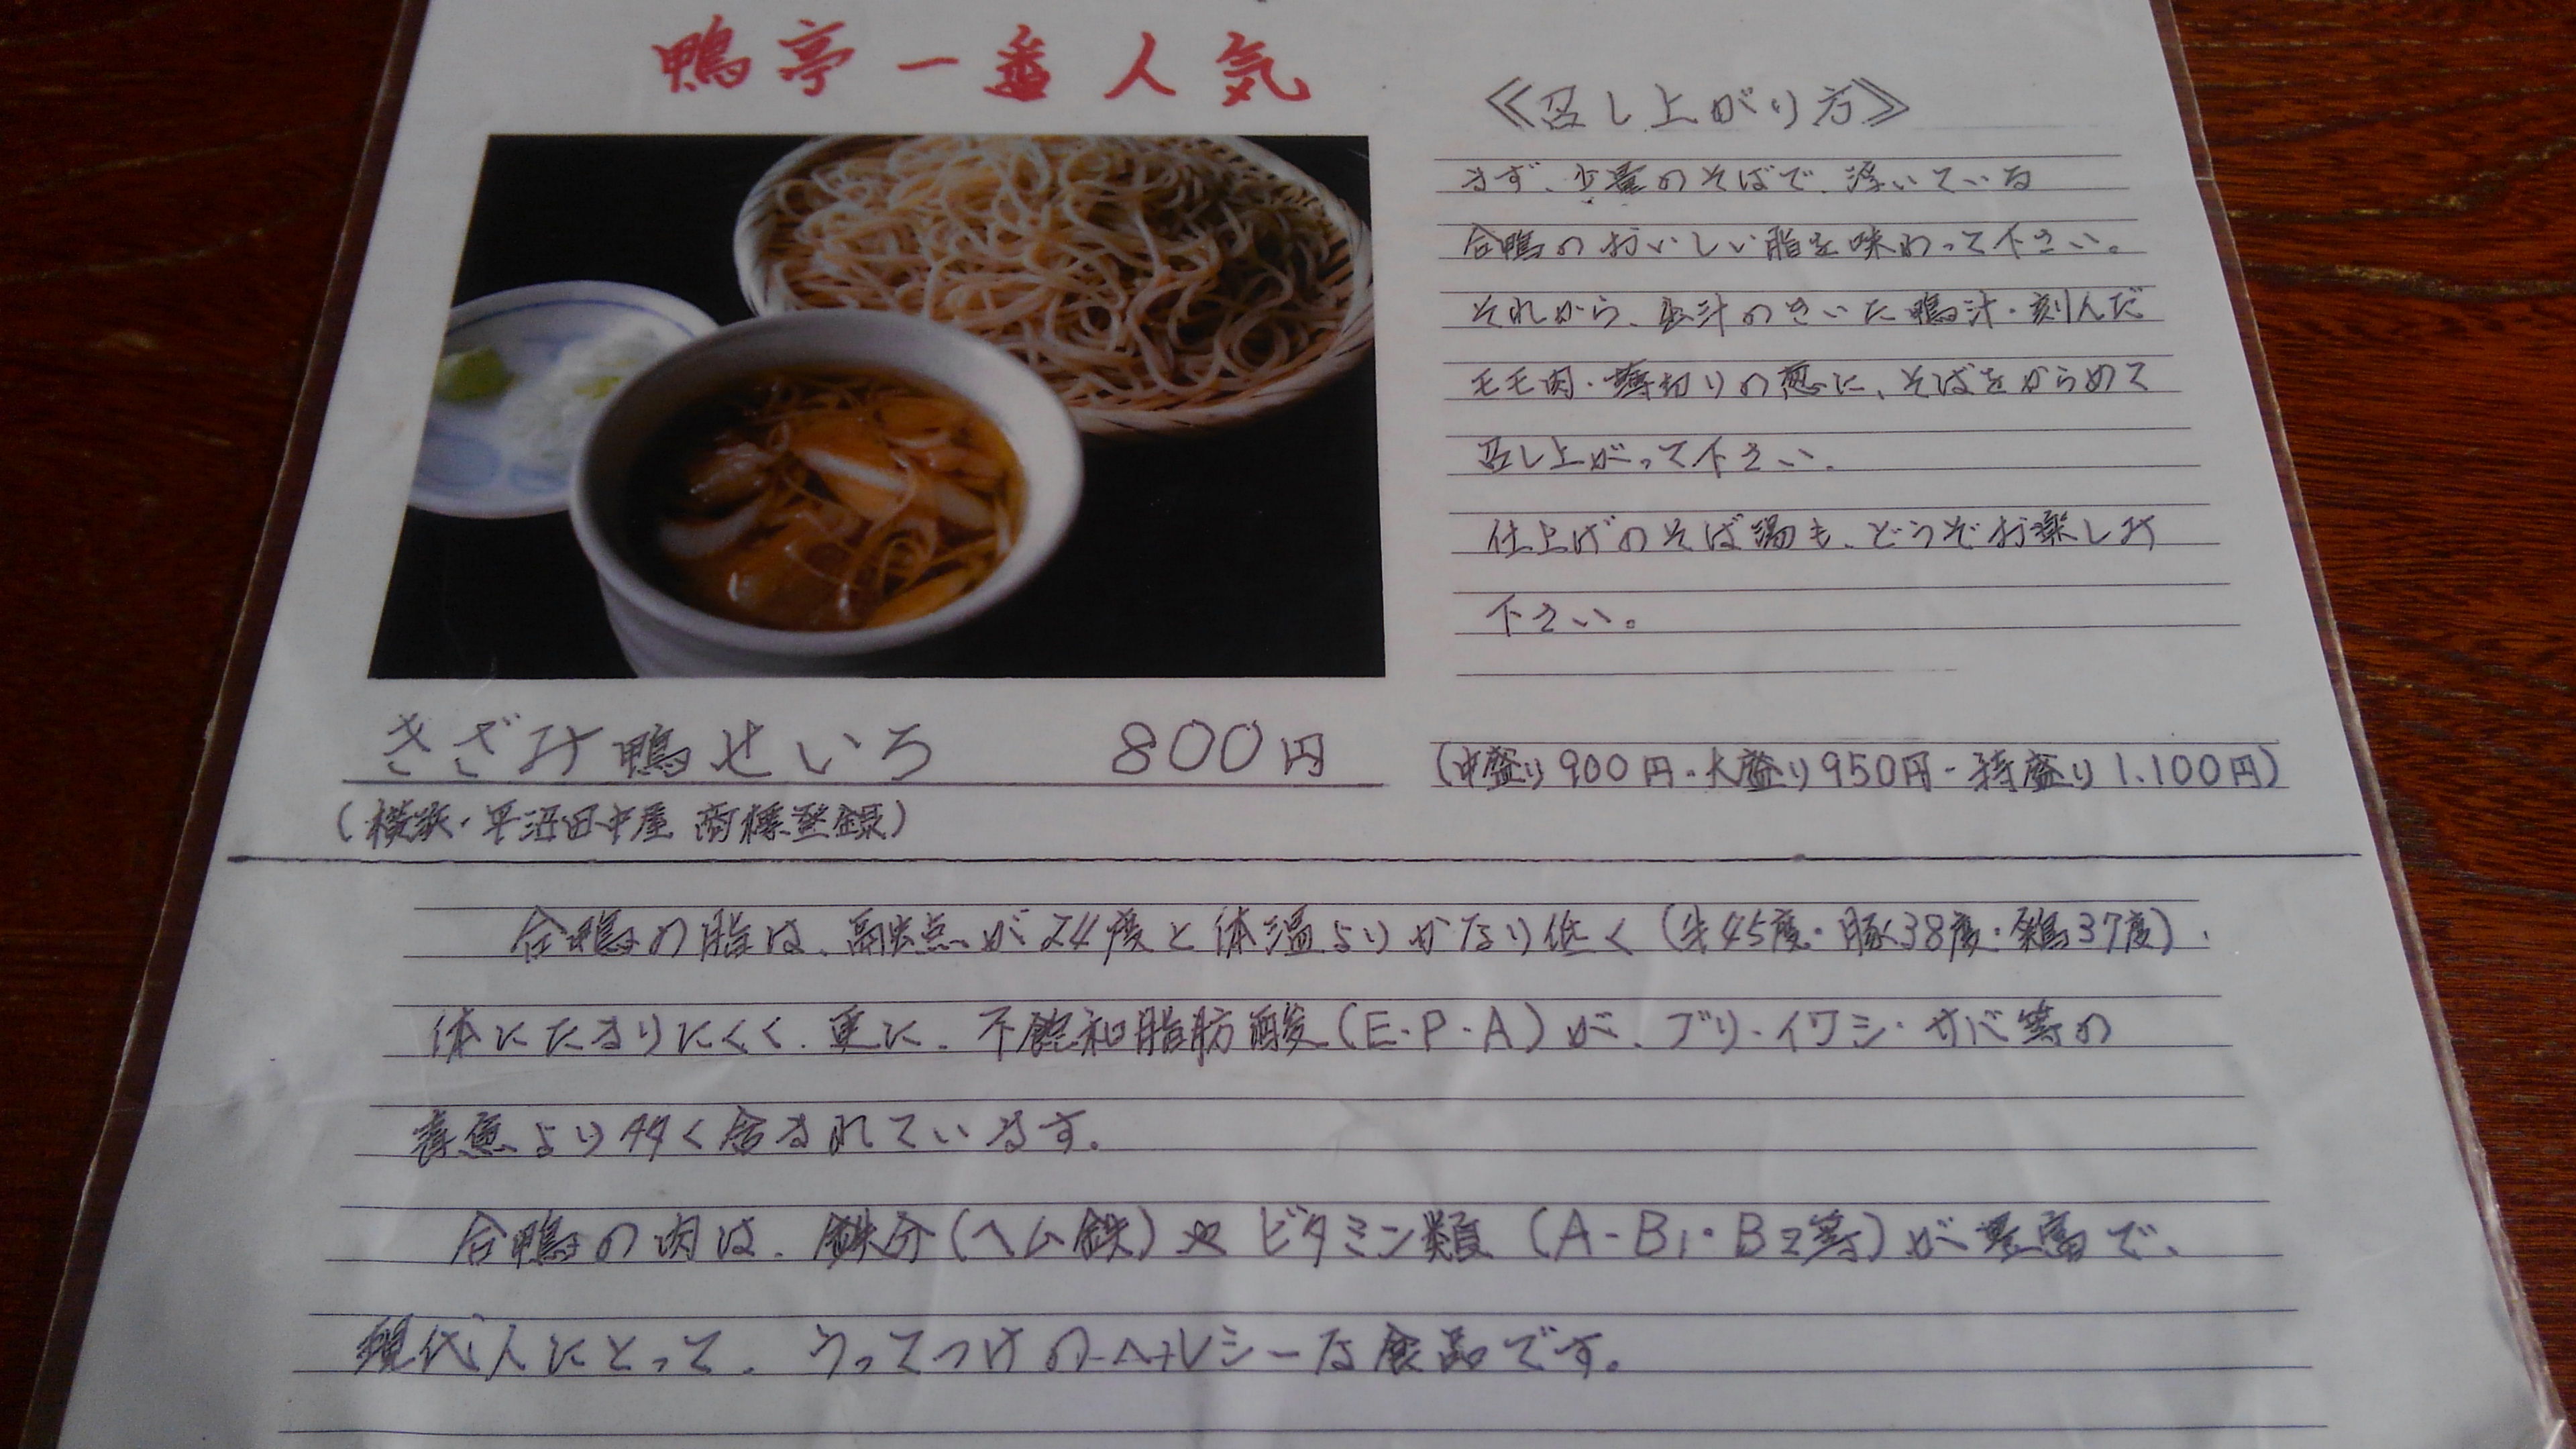 鴨亭一番人気
《召し上がり方》
まず、少量のそばで、浮いている
合鴨のおいしい脂を味わって下さい。
それから、出汁のきいた鴨汁・刻んだ
モモ肉・薄切りの葱に、そばをからめて
召し上がって下さい。
仕上げのそば湯も、どうぞお楽しみ
下さい。
きざみ鴨せいろ 800円 (中盛り900円・大盛り950円・特盛り1.100円)
(横浜・平沼田中屋 商標登録)
合鴨の脂は、融点が24度と体温よりかなり低く(牛45度・豚38度・鶏37度)、
体にたまりにくく、更に、不飽和脂肪酸(E・P・A)が、ブリ・イワシ・サバ等の
青魚より多く含まれています。
合鴨の肉は、鉄分(ヘム鉄)やビタミン類(A・B1・B2等)が豊富で、
現代人にとって、うってつけのヘルシーな食品です。